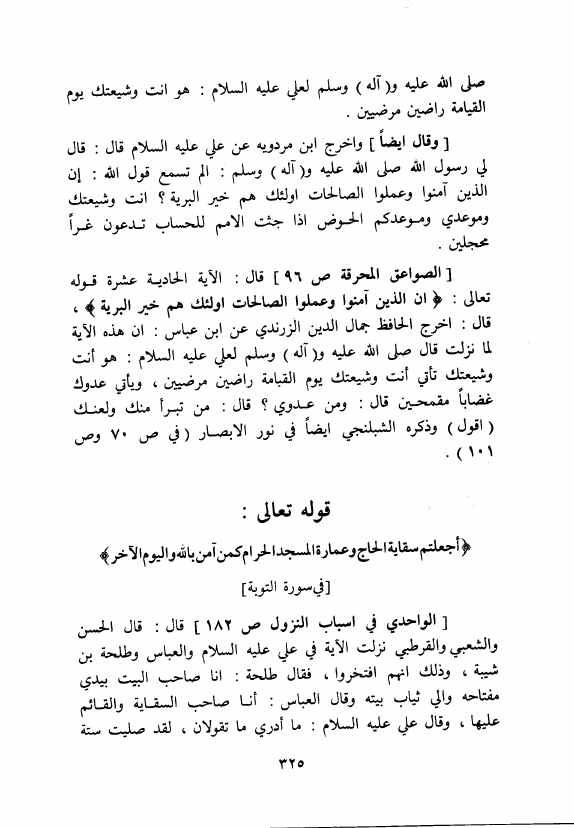 صلى الله عليه و( آله ) وسلم لعلي عليه السلام : هو انت وشيعتك يوم
القيامة راضين مرضيين .
[ وقال ايضاً ] واخرج ابن مردويه عن علي عليه السلام قال : قال
لي رسول الله صلى الله عليه و( آله ) وسلم : الم تسمع قول الله : إن
الذين آمنوا وعملوا الصالحات اولئك هم خير البرية ؟ انت وشيعتك
وموعدي وموعدكم الحوض اذا جثت الامم للحساب تدعون غراً
محجلين .
[ الصواعق المحرقة ص ٩٦ ] قال : الآية الحادية عشرة قوله
تعالى : ﴿ ان الذين آمنوا وعملوا الصالحات اولئك هم خير البرية ﴾ ،
قال : اخرج الحافظ جمال الدين الزرندي عن ابن عباس : ان هذه الآية
لما نزلت قال صلى الله عليه و( آله ) وسلم لعلي عليه السلام : هو أنت
وشيعتك تأتي أنت وشيعتك يوم القيامة راضين مرضيين ، ويأتي عدوك
غضاباً مقمحين قال : ومن عدوي ؟ قال : من تبرأ منك ولعنك
( اقول ) وذكره الشبلنجي ايضاً في نور الابصار ( في ص ٧٠ وص
١٠١ ) .
قوله تعالى :
﴿ أجعلتم سقاية الحاج وعمارة المسجد الحرام كمن آمن بالله واليوم الآخر ﴾
[في سورة التوبة]
[ الواحدي في اسباب النزول ص ١٨٢ ] قال : قال الحسن
والشعبي والقرطبي نزلت الآية في علي عليه السلام والعباس وطلحة بن
شيبة ، وذلك انهم افتخروا ، فقال طلحة : انا صاحب البيت بيدي
مفتاحه والي ثياب بيته وقال العباس : أنا صاحب السقاية والقائم
عليها ، وقال علي عليه السلام : ما أدري ما تقولان ، لقد صليت ستة
٣٢٥